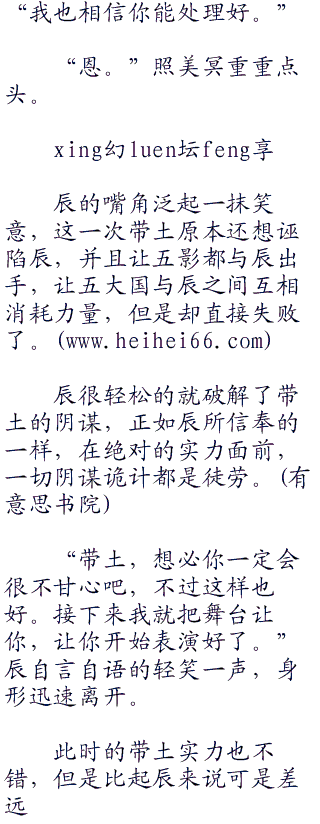 “我也相信你能处理好。”
“恩。”照美冥重重点
头。
xing幻luen坛feng享
辰的嘴角泛起一抹笑
意，这一次带土原本还想诬
陷辰，并且让五影都与辰出
手，让五大国与辰之间互相
消耗力量，但是却直接失败
了。(www.heihei66.com)
辰很轻松的就破解了带
土的阴谋，正如辰所信奉的
一样，在绝对的实力面前，
一切阴谋诡计都是徒劳。(有
意思书院)
“带土，想必你一定会
很不甘心吧，不过这样也
好。接下来我就把舞台让
你，让你开始表演好了。”
辰自言自语的轻笑一声，身
形迅速离开。
此时的带土实力也不
错，但是比起辰来说可是差
远